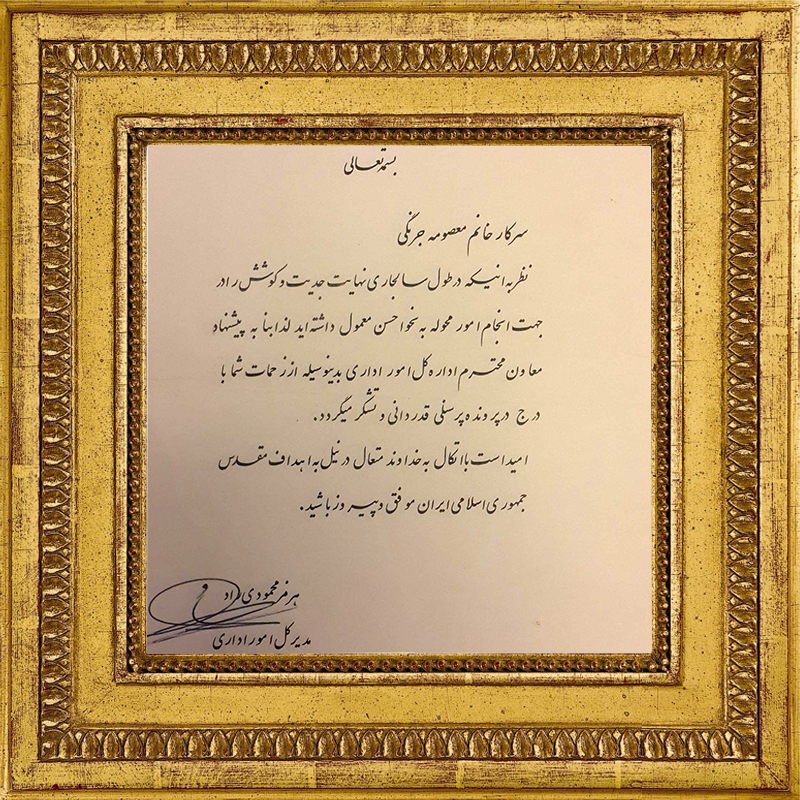 بسمه تعالی
سرکار خانم معصومه جرنگی
نظر به اینکه در طول سالجاری نهایت جدیت و کوشش را در
جهت انجام امور محوله به نحو احسن معمول داشته اید لذا بنا به پیشنهاد
معاون محترم اداره کل امور اداری بدینوسیله از زحمات شما با
درج در پرونده پرسنلی قدردانی و تشکر میگردد.
امید است با اتکال به خداوند متعال در نیل به اهداف مقدس
جمهوری اسلامی ایران موفق و پیروز باشید.
هرمز محمودی راد
مدیر کل امور اداری